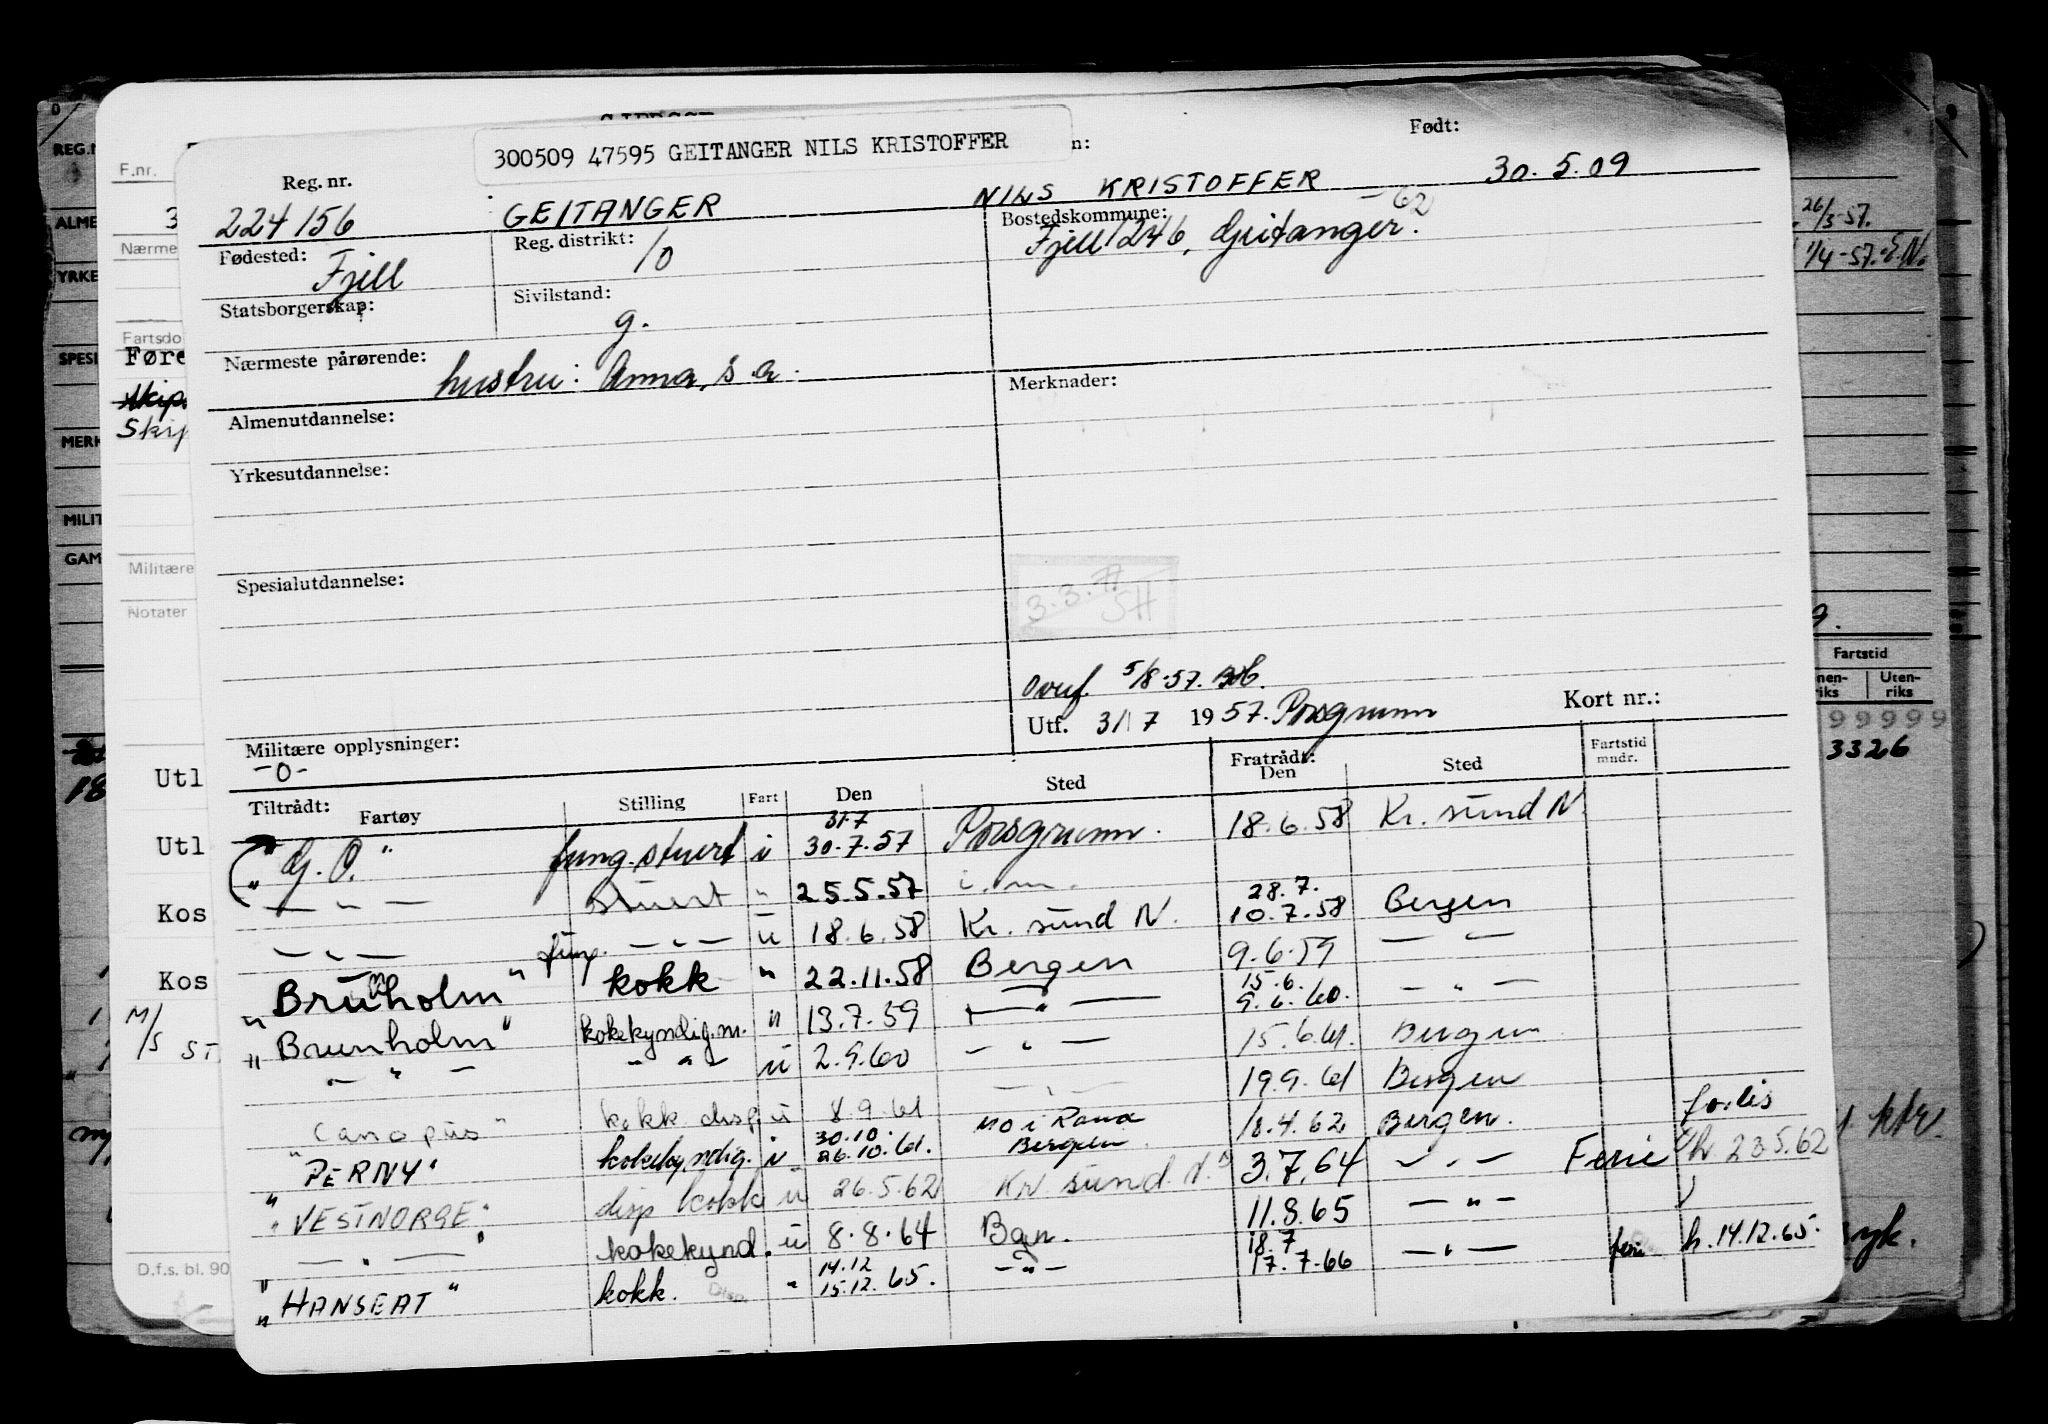 300509 47595 GEITANGER NILS KRISTOFFER
Født:
Reg. nr.
224156 GEITANGER NILS KRISTOFFER 30.5.09
Fødested: Fjell
Reg. distrikt: 10
Bostedskommune: -62
Fjell 1246, Geitanger.
Statsborgerskap:
Sivilstand: g.
Nærmeste pårørende: hustru: Anna, s.a.
Merknader:
Almenutdannelse:
Yrkesutdannelse:
Spesialutdannelse:
3.3.77 SH
Overf. 5/8-57.
Utf. 31/7 1957. Porsgrunn
Kort nr.:
Militære opplysninger:
-o-
Tiltrådt: Fartøy Stilling Fart Den Sted Fratrådt: Den Sted Fartstid mndr.
31.7
"G.O." fung. stuert i 30.7.57 Porsgrunn. 18.6.58 Kr. sund N.
— " — stuert " 25.5.57 i.m. 28.7.
— " — fung. — " — u 18.6.58 Kr. sund N. 10.7.58 Bergen
"Brunholm" kokk " 22.11.58 Bergen 9.6.59 — " —
15.6.
"Brunholm" kokekyndig.m. " 13.7.59 — " — 9.6.60. — " —
— " — — " — u 2.9.60 — " — 15.6.61. Bergen
"Canopus" kokk disp. u 8.9.61 — " — 19.9.61 Bergen
30.10. Mo i Rana forlis
"PERNY" kokekyndig. i 26.10.61. Bergen. 18.4.62 Bergen.
"VESTNORGE" disp kokk u 26.5.62 Kr. sund. N. 3.7.64 — " — Ferie h. 23.5.62
— " — kokekynd. u 8.8.64 Bgn. 11.8.65 — " —
14.12 18.7
"HANSEAT" kokk. Disp. " 15.12.65. — " — 17.7.66 — " — ferie h. 14.12.65.
REG.N
F.nr.
3
ALME
Nærme
YRKE
Fartsdo
SPESI
Føre
Skip
MERK
MILIT
GAM
Militære
Notater
Utl
18
Utl
Kos
Kos
M/S ST
D.f.s. bl. 90
26/3-57.
1/4-57. E.N.
Fartstid
nen-riks
Uten-riks
99999
3326